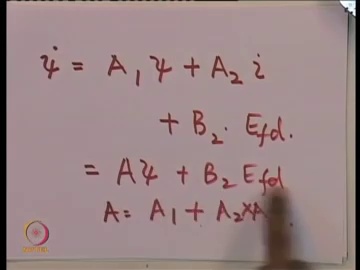 ψ̇ = A₁ψ + A₂ i
+ B₂. E_fd.
= Aψ + B₂ E_fd
A = A₁ + A₂ × A